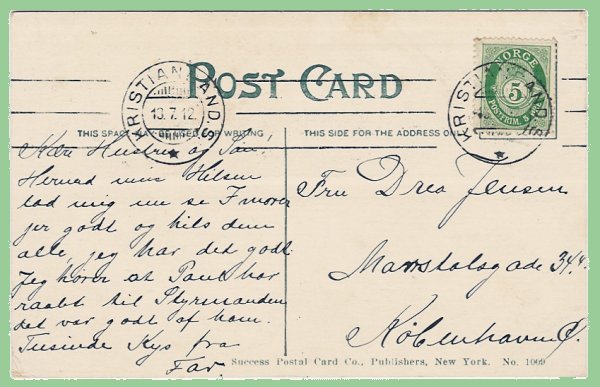 POST CARD
KRISTIANSAND S
13.7.12.
NORGE
5
POSTFRIM. 5 ØRE
KRISTIANSAND
THIS SPACE MAY BE USED FOR WRITING
THIS SIDE FOR THE ADDRESS ON
Kære Hustru og Smaa!
Hermed min Hilsen
lad mig nu se I morer
jer godt og hils dem
alle, jeg har det godt.
Jeg hører at Paul har
raabt til Styrmanden
det var godt af ham.
Tusinde Kys fra
Far.
Fru Drea Jensen
Marstalsgade 34 4.
København Ø.
Success Postal Card Co., Publishers, New York. No. 1009